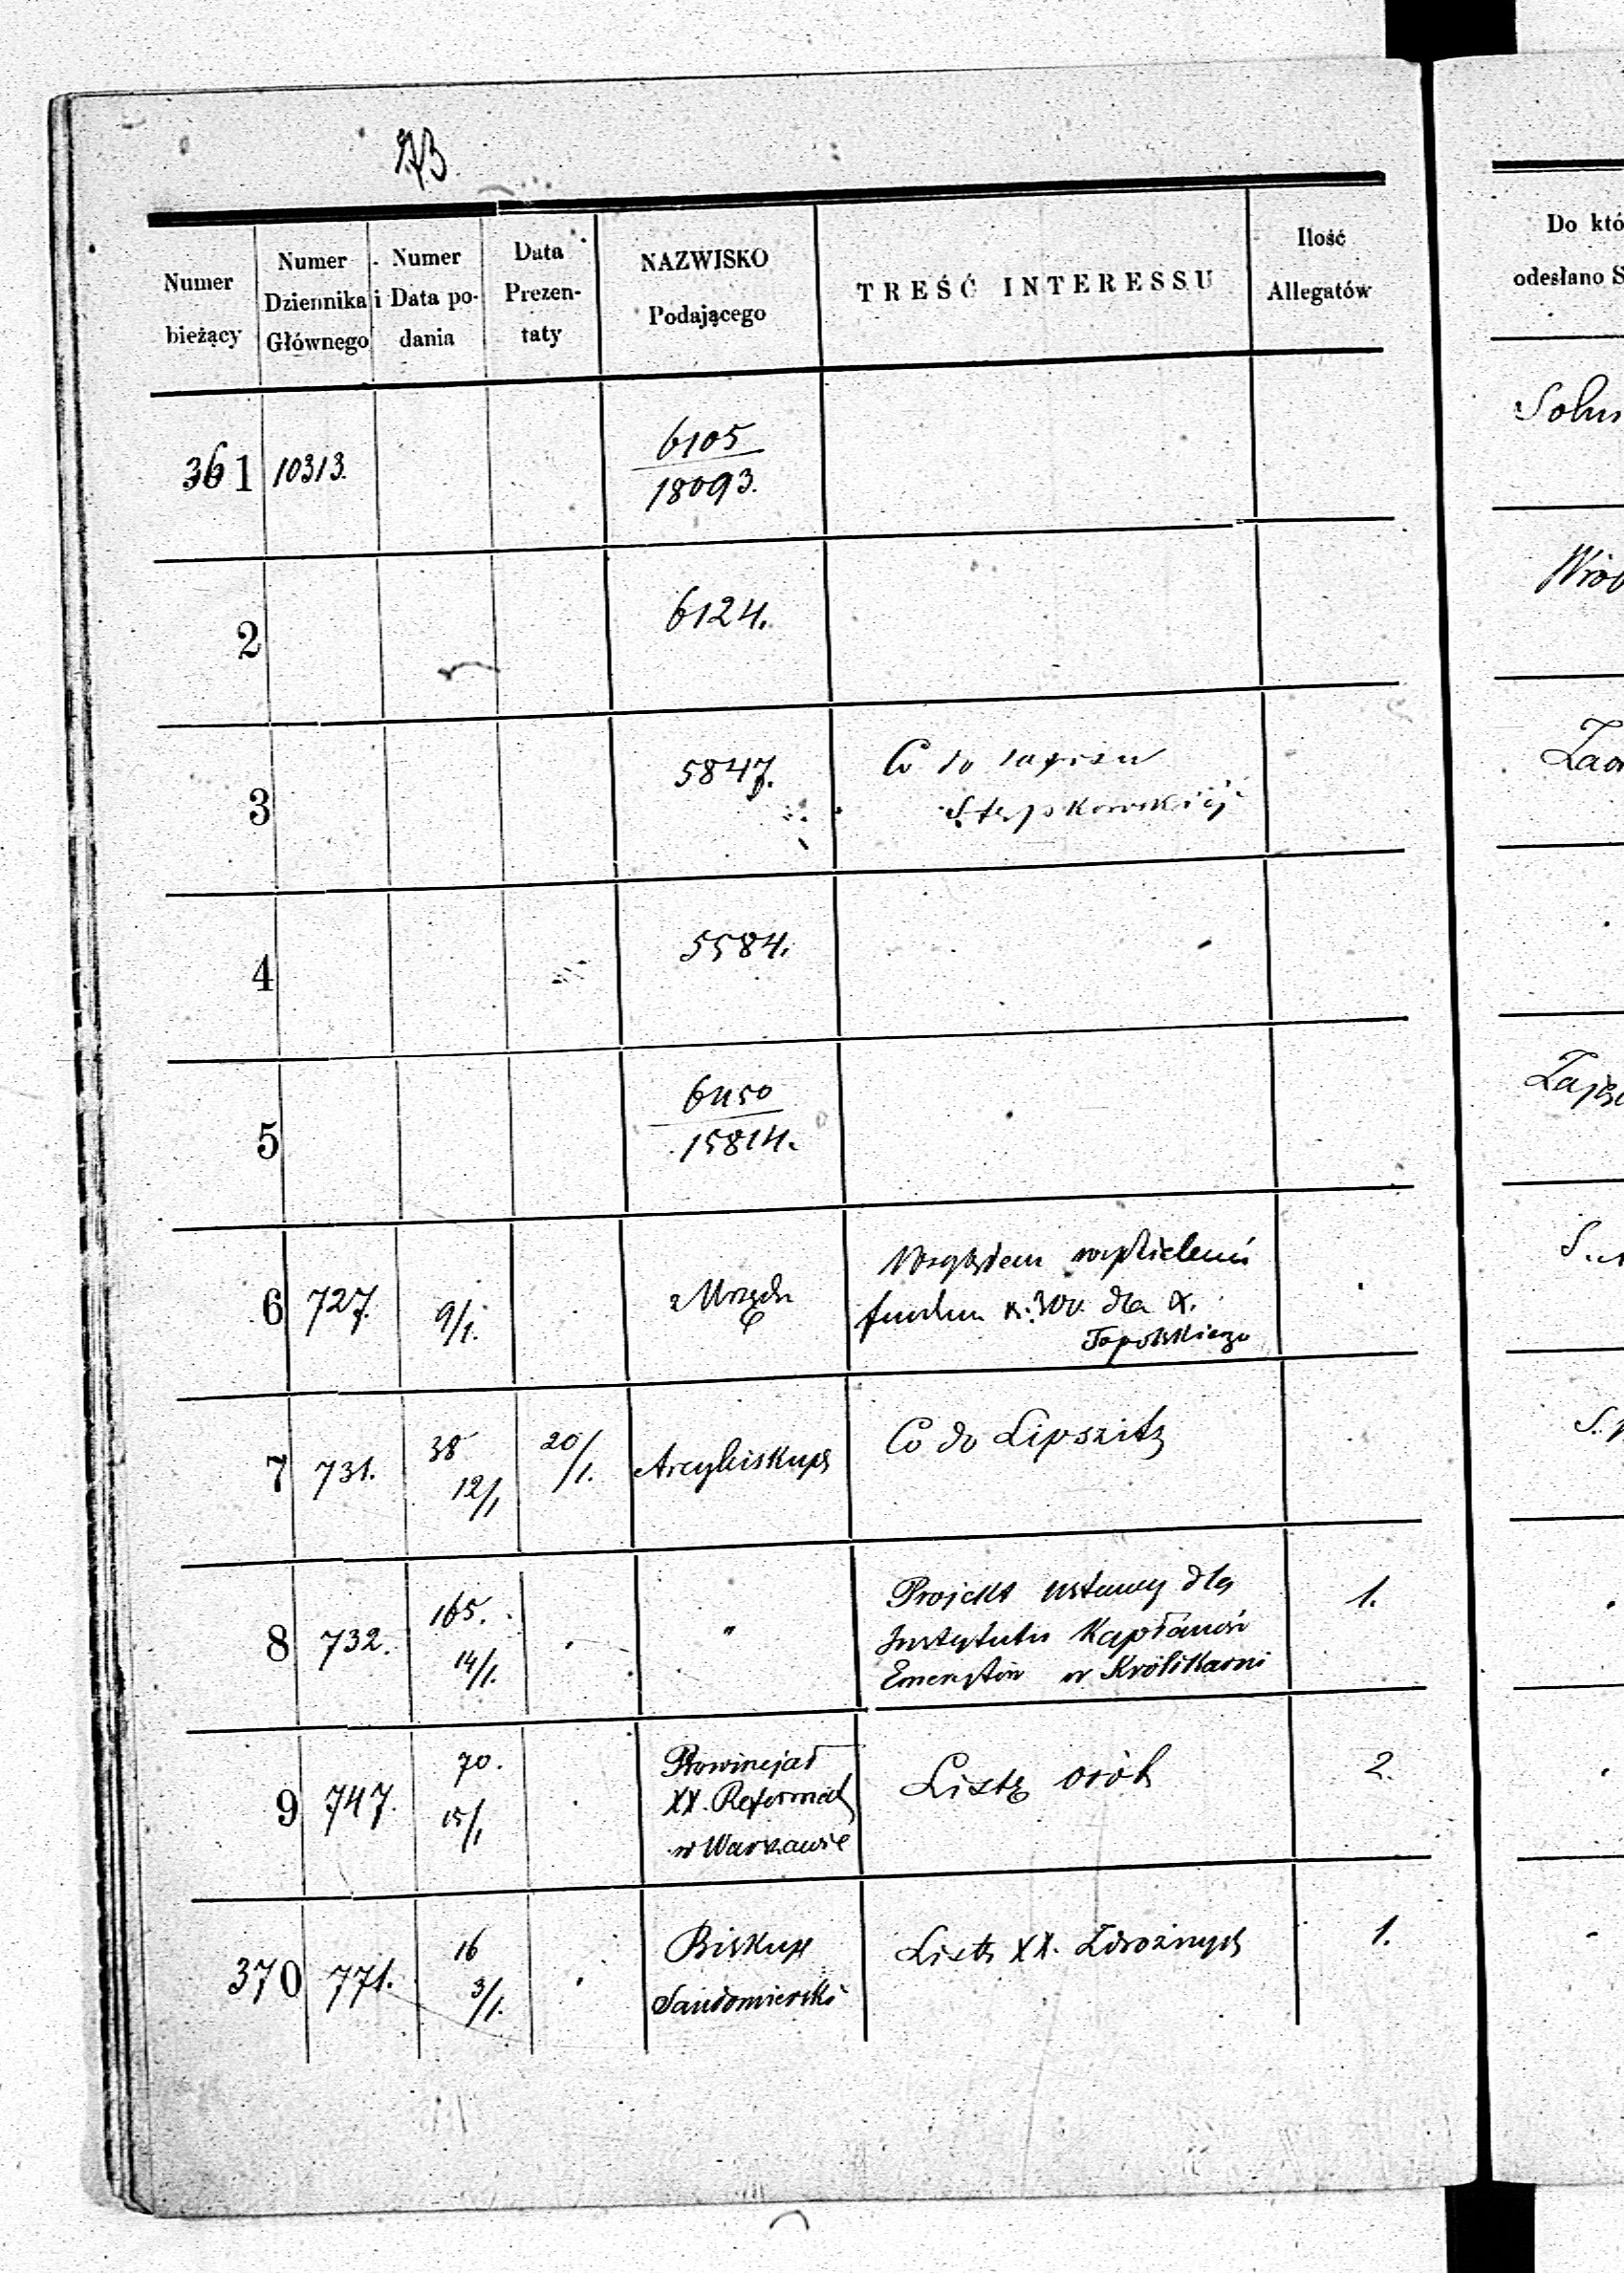 73.
Numer bieżący
Numer Dziennika Głównego
Numer i Data podania
Data Prezentaty
NAZWISKO Podającego
TREŚĆ INTERESSU
Ilość Allegatów
Do któ
odesłano S
361 10313. 6105
18093.
2 6124.
3 5847. Co do
4 5584.
5 6450
15814.
6 727. 9/1. z Urzędu Względem
funduszu 300 dla X.
Topolskiego
7 731. 38 12/1 20/1. Arcybiskup Co do Lipszitz
8 732. 165. 14/1. " Projekt ustawy dla 1.
Instytutu Kapłanów
Emerytów w Królikarni
9 747. 70. 15/1 Prowincjał Listę osób 2.
XX. Reformatów
w Warszawie
370 771. 16 3/1. Biskup Listę XX. Zdrożnych 1.
Sandomierski